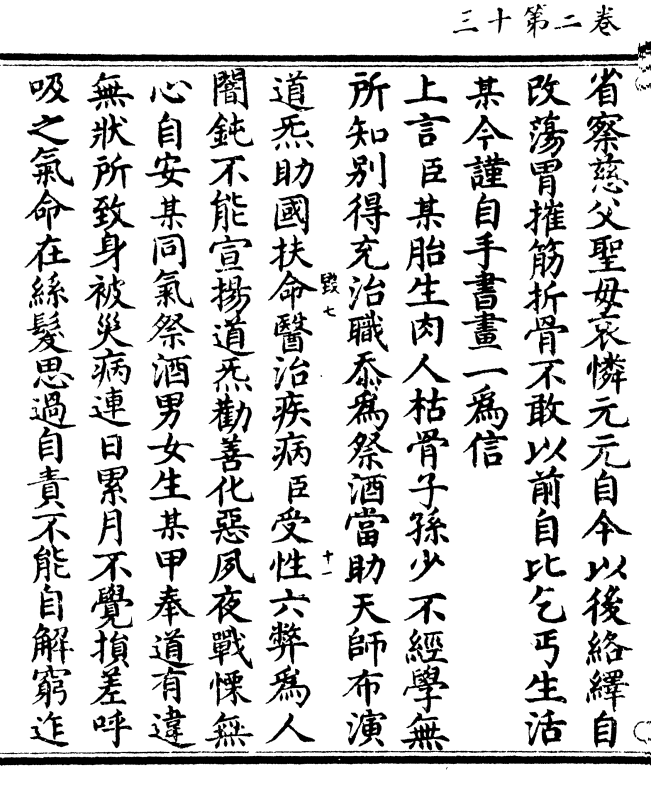 三十第二卷
省察慈父聖母哀憐元元自今以後絡繹自
改蕩胃摧筋折骨不敢以前自比乞丐生活
某今謹自手書畫一爲信
上言臣某胎生肉人枯骨子孫少不經學無
所知别得充治職忝爲祭酒當助天師布演
道炁助國扶命醫治疾病臣受性六弊爲人
毀七
十一
闇鈍不能宣揚道炁勸善化惡夙夜戰慄無
心自安某同氣祭酒男女生某甲奉道有違
無狀所致身被災病連日累月不覺損差呼
吸之氣命在絲髮思過自責不能自解窮迮